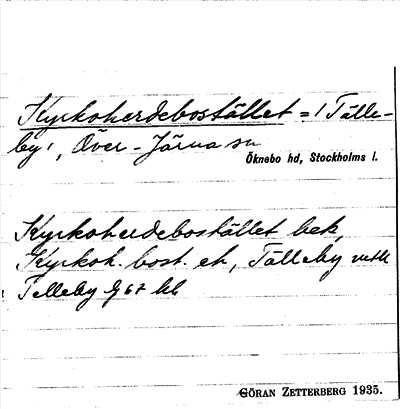 Kyrkoherdebostället = 'Tälle-
by', Över-Järna sn
Öknebo hd, Stockholms l.
Kyrkoherdebostället bek,
Kyrkoh. bost. ek, Tälleby
Telleby G 67 hl
GÖRAN ZETTERBERG 1935.